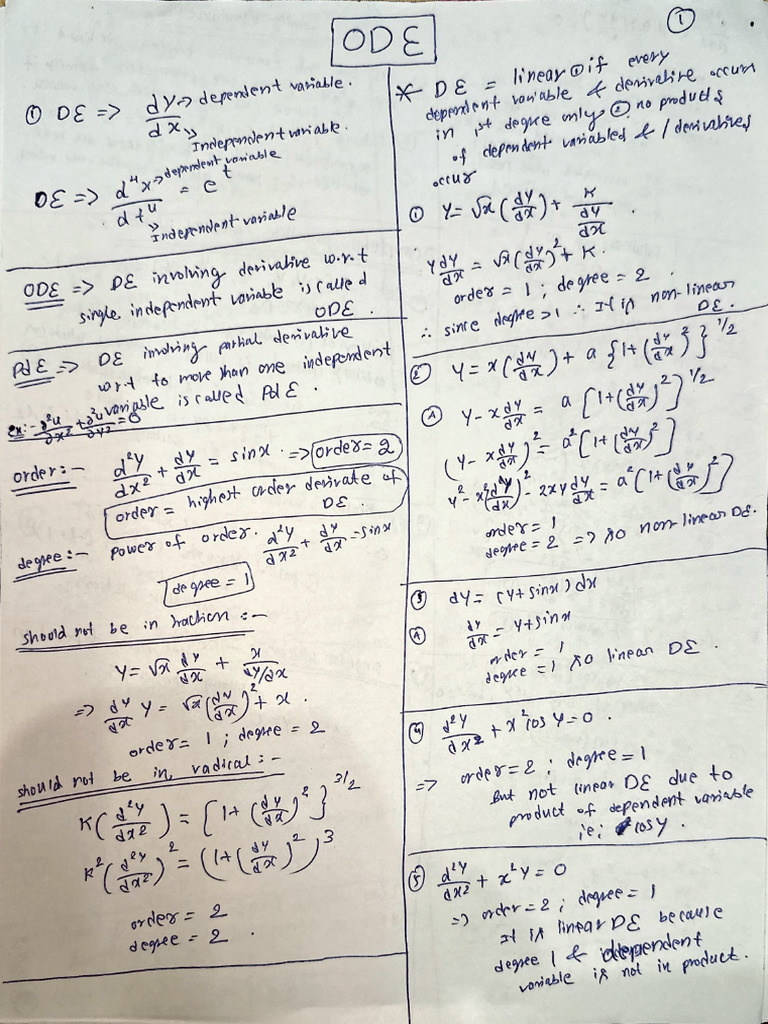 ①
ODE
① DE => dy/dx -> dependent variable.
-> Independent variable.
DE => d⁴x/dt⁴ = e^t
-> dependent variable
-> Independent variable
ODE => DE involving derivative w.r.t
single independent variable is called
ODE.
PdE => DE involving partial derivative
w.r.t to more than one independent
variable is called PdE.
ex:- ∂²u/∂x² + ∂²u/∂y² = 0
order:- d²y/dx² + dy/dx = sinx. => order = 2
order = highest order derivate of
DE.
degree:- power of order. d²y/dx² + dy/dx = sinx
degree = 1
should not be in fraction :-
y = √x dy/dx + x/(dy/dx)
=> dy/dx y = √x (dy/dx)² + x.
order = 1 ; degree = 2
should not be in radical :-
K(d²y/dx²) = [1 + (dy/dx)²}^3/2
K²(d²y/dx²)² = (1 + (dy/dx)²)³
order = 2
degree = 2.
* DE = linear ① if every
dependent variable & derivative occurs
in 1st degree only ② no products
of dependent variabled & / derivatives
occur
① y = √x (dy/dx) + K/(dy/dx).
y dy/dx = √x (dy/dx)² + K.
order = 1 ; degree = 2.
∴ since degree > 1 ∴ It is non-linear
DE.
② y = x(dy/dx) + a {1 + (dy/dx)²}^1/2
Ⓐ y - x dy/dx = a [1 + (dy/dx)²]^1/2
(y - x dy/dx)² = a² [1 + (dy/dx)²]
y² - x²(dy/dx)² - 2xy dy/dx = a² [1 + (dy/dx)²]
order = 1
degree = 2 => so non-linear DE.
③ dy = (y + sinx) dx
Ⓐ dy/dx = y + sinx
order = 1
degree = 1 so linear DE.
④ d²y/dx² + x² cos y = 0.
=> order = 2 ; degree = 1
But not linear DE due to
product of dependent variable
ie; cosy.
⑤ d²y/dx² + x²y = 0
=> order = 2 ; degree = 1
It is linear DE because
degree 1 & dependent
variable is not in product.